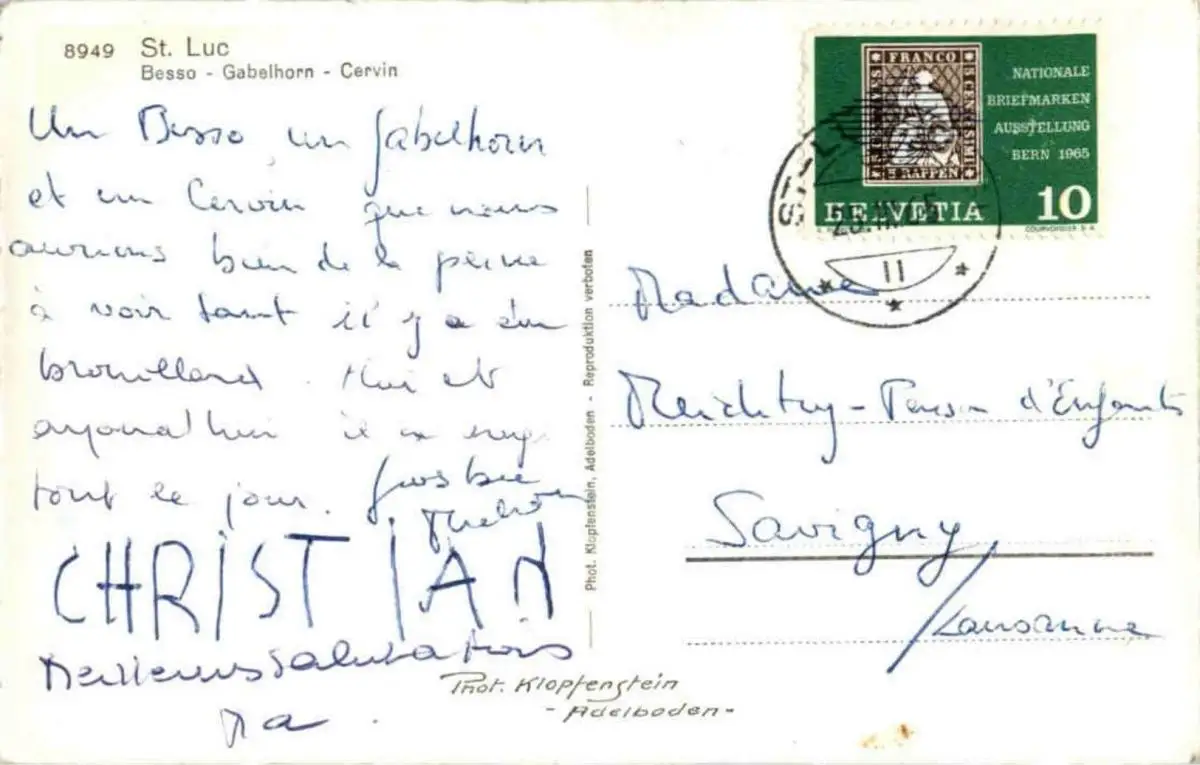 8949 St. Luc
Besso - Gabelhorn - Cervin
Un Besso, un Gabelhorn
et un Cervin que nous
aurions bien de la peine
à voir tant il y a du
brouillard. Hier et
aujourd'hui il a neigé
tout le jour. Gros bec
CHRISTIAN
Meilleures salutations
Phot. Klopfenstein, Adelboden - Reproduktion verboten
Phot. Klopfenstein
- Adelboden -
FRANCO
5 CENTESIMI
5 RAPPEN
NATIONALE
BRIEFMARKEN
AUSSTELLUNG
BERN 1965
HELVETIA 10
COURVOISIER S.A.
ST-LUC
11
Madame
Meichtry - Pension d'Enfants
Savigny
/Lausanne